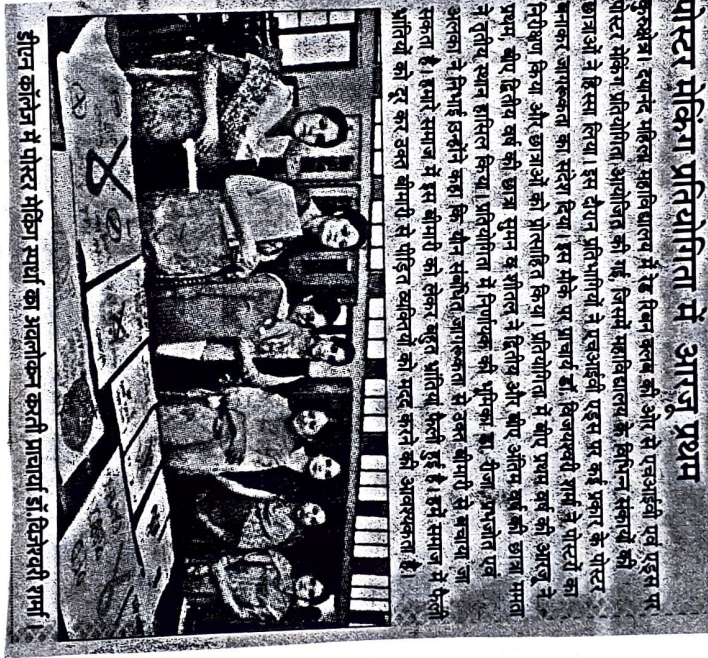 पोस्टर मेकिंग प्रतियोगिता में आरजू प्रथम
कुरुक्षेत्र। दयानंद महिला महाविद्यालय में रेड रिबन क्लब की ओर से एचआईवी एवं एड्स पर
पोस्टर मेकिंग प्रतियोगिता आयोजित की गई, जिसमें महाविद्यालय के विभिन्न संकाय की
छात्राओं ने हिस्सा लिया। इस दौरान प्रतिभागियों ने एचआईवी एड्स पर कई प्रकार के पोस्टर
बनाकर जागरूकता का संदेश दिया। इस मौके पर प्राचार्य डॉ. विजयेश्वरी शर्मा ने पोस्टरों का
निरीक्षण किया और छात्राओं को प्रोत्साहित किया। प्रतियोगिता में बीए प्रथम वर्ष की आरजू ने
प्रथम, बीए द्वितीय वर्ष की छात्रा सुमन व शीतल ने द्वितीय और बीए अंतिम वर्ष की छात्रा ममता
ने तृतीय स्थान हासिल किया। प्रतियोगिता में निर्णायक की भूमिका डा. एवं
अलका ने निभाई उन्होंने कहा कि यौन संबंधित जागरूकता से उक्त बीमारी से बचाया जा
सकता है। हमारे समाज में इस बीमारी को लेकर बहुत भ्रांतियां फैली हुई है। हमें समाज में फैली
भ्रांतियों को दूर कर उक्त बीमारी से पीड़ित व्यक्तियों की मदद करने की आवश्यकता है।
डीएन कॉलेज में पोस्टर मेकिंग स्पर्धा का अवलोकन करती प्राचार्या डॉ. विजेश्वरी शर्मा।